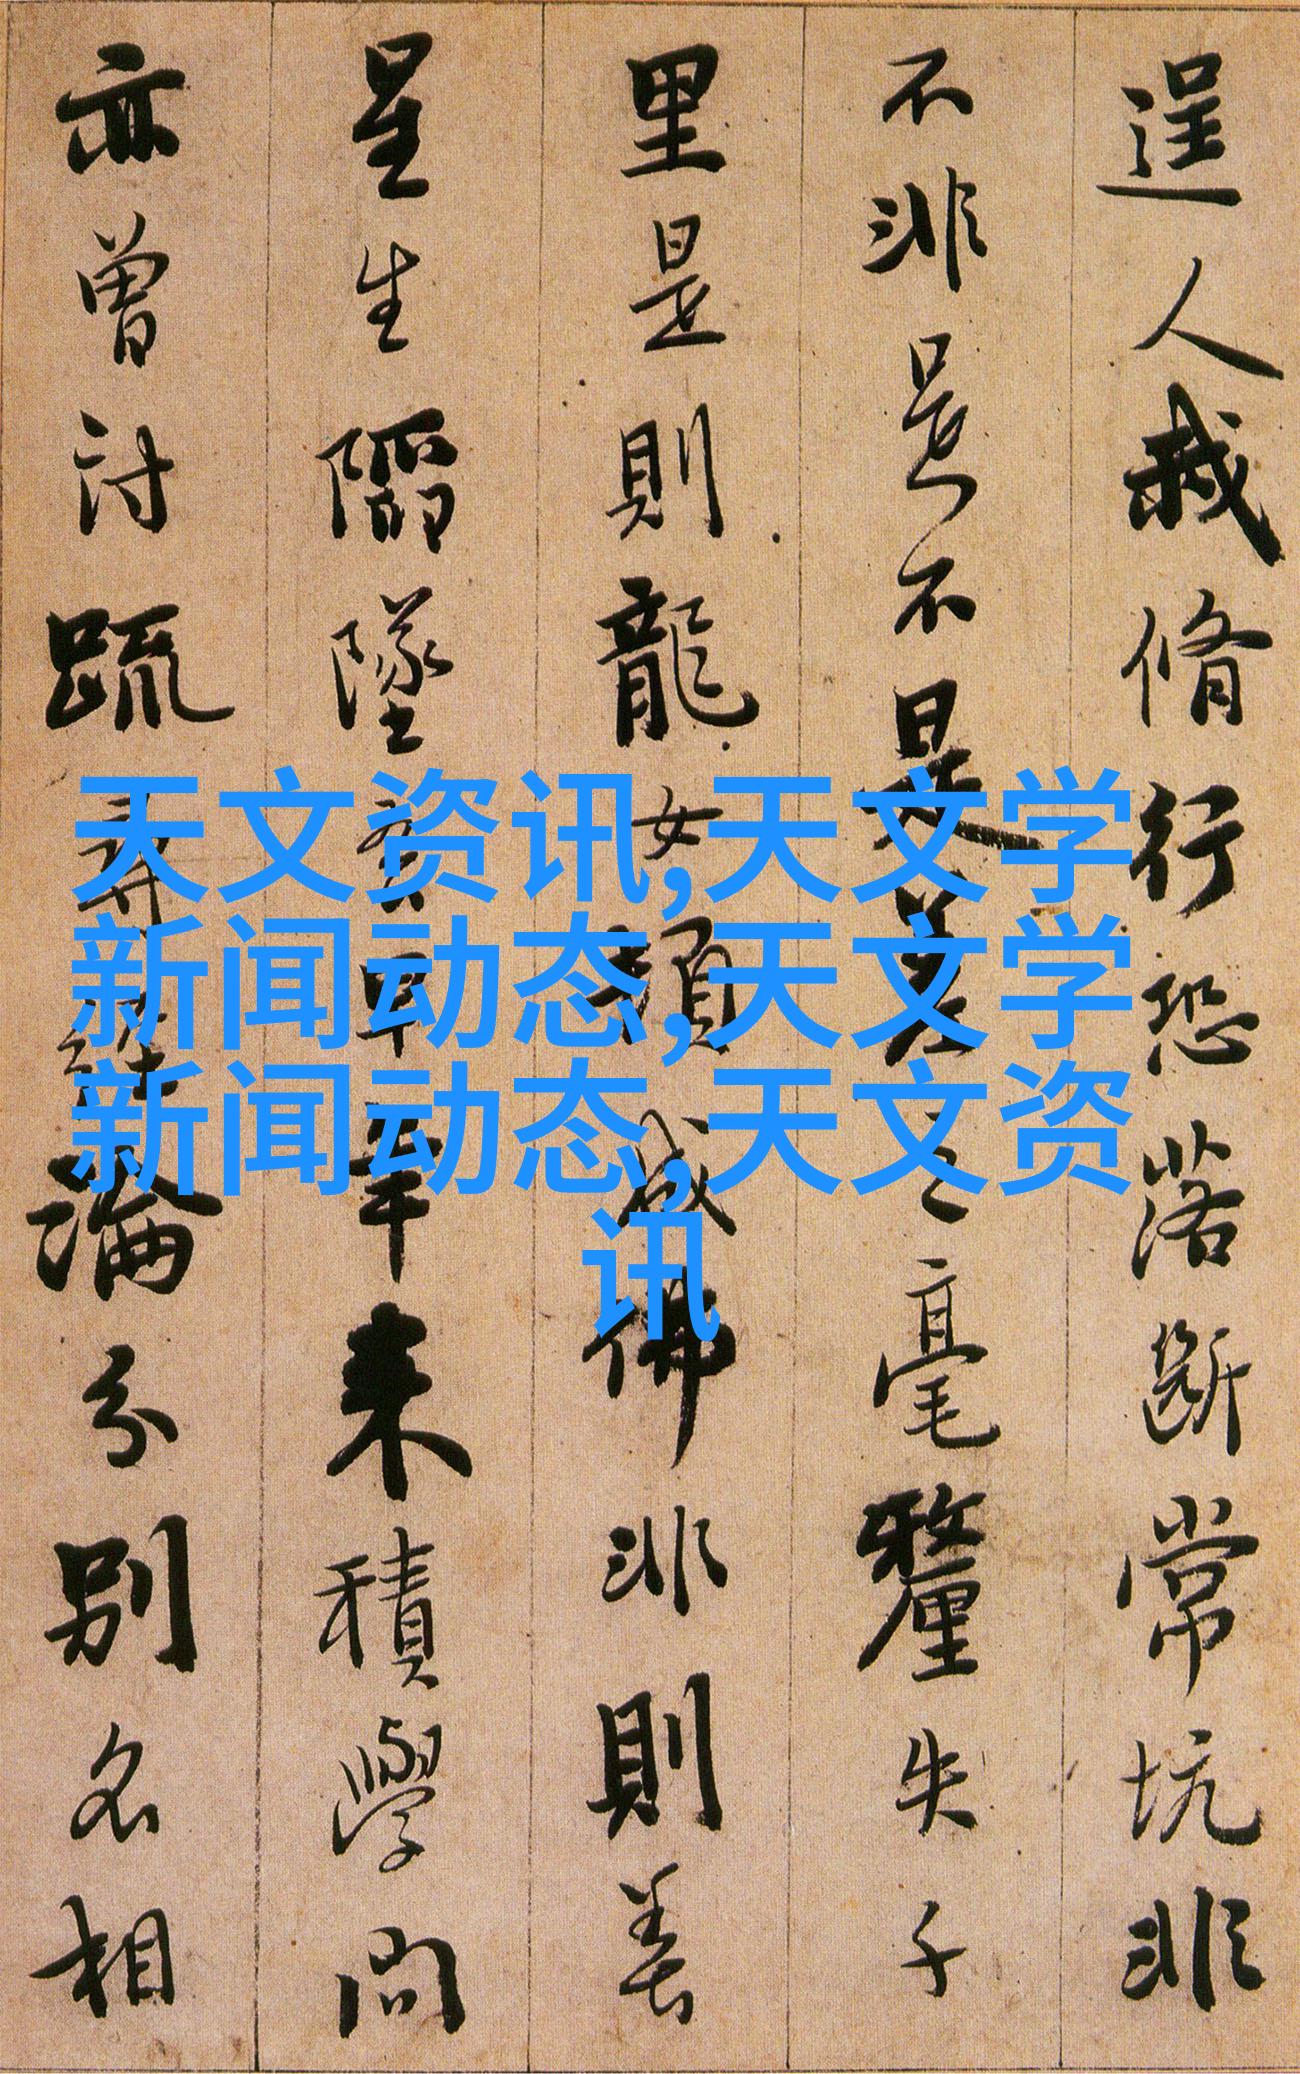 逞人我脩行恐落斷常坑非
不非是不是差之毫釐失千
里是則龍女頓成佛非則善
星生陷墜吾早年来積學問
亦曾討疏尋經論分別名相
天文资讯,天文学
新闻动态,天文学
新闻动态,天文资
讯